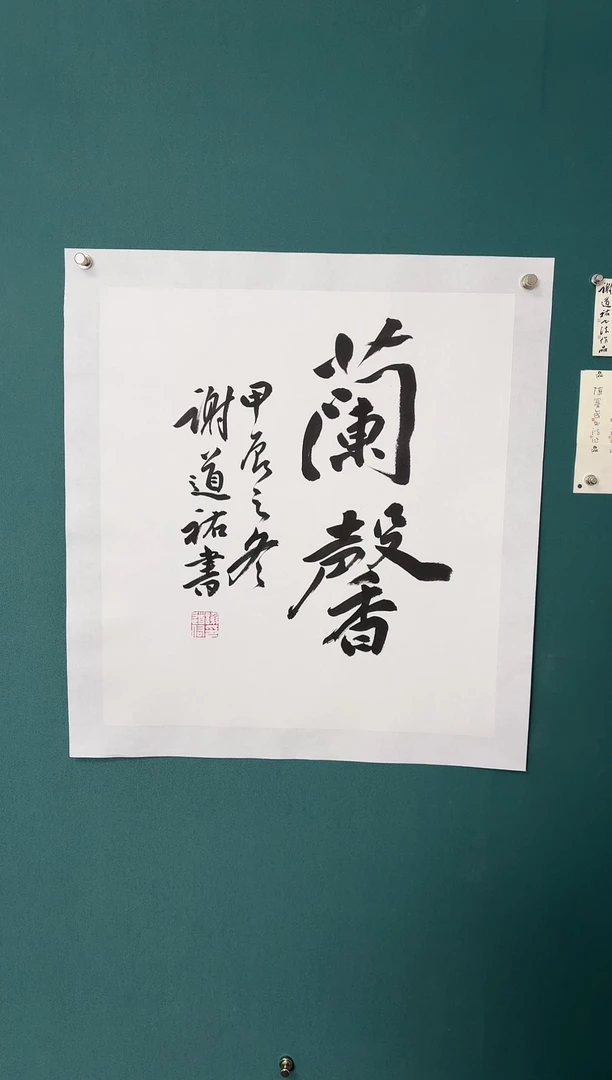 蘭馨
甲辰之冬
謝道祐書
謝道祐书法作品